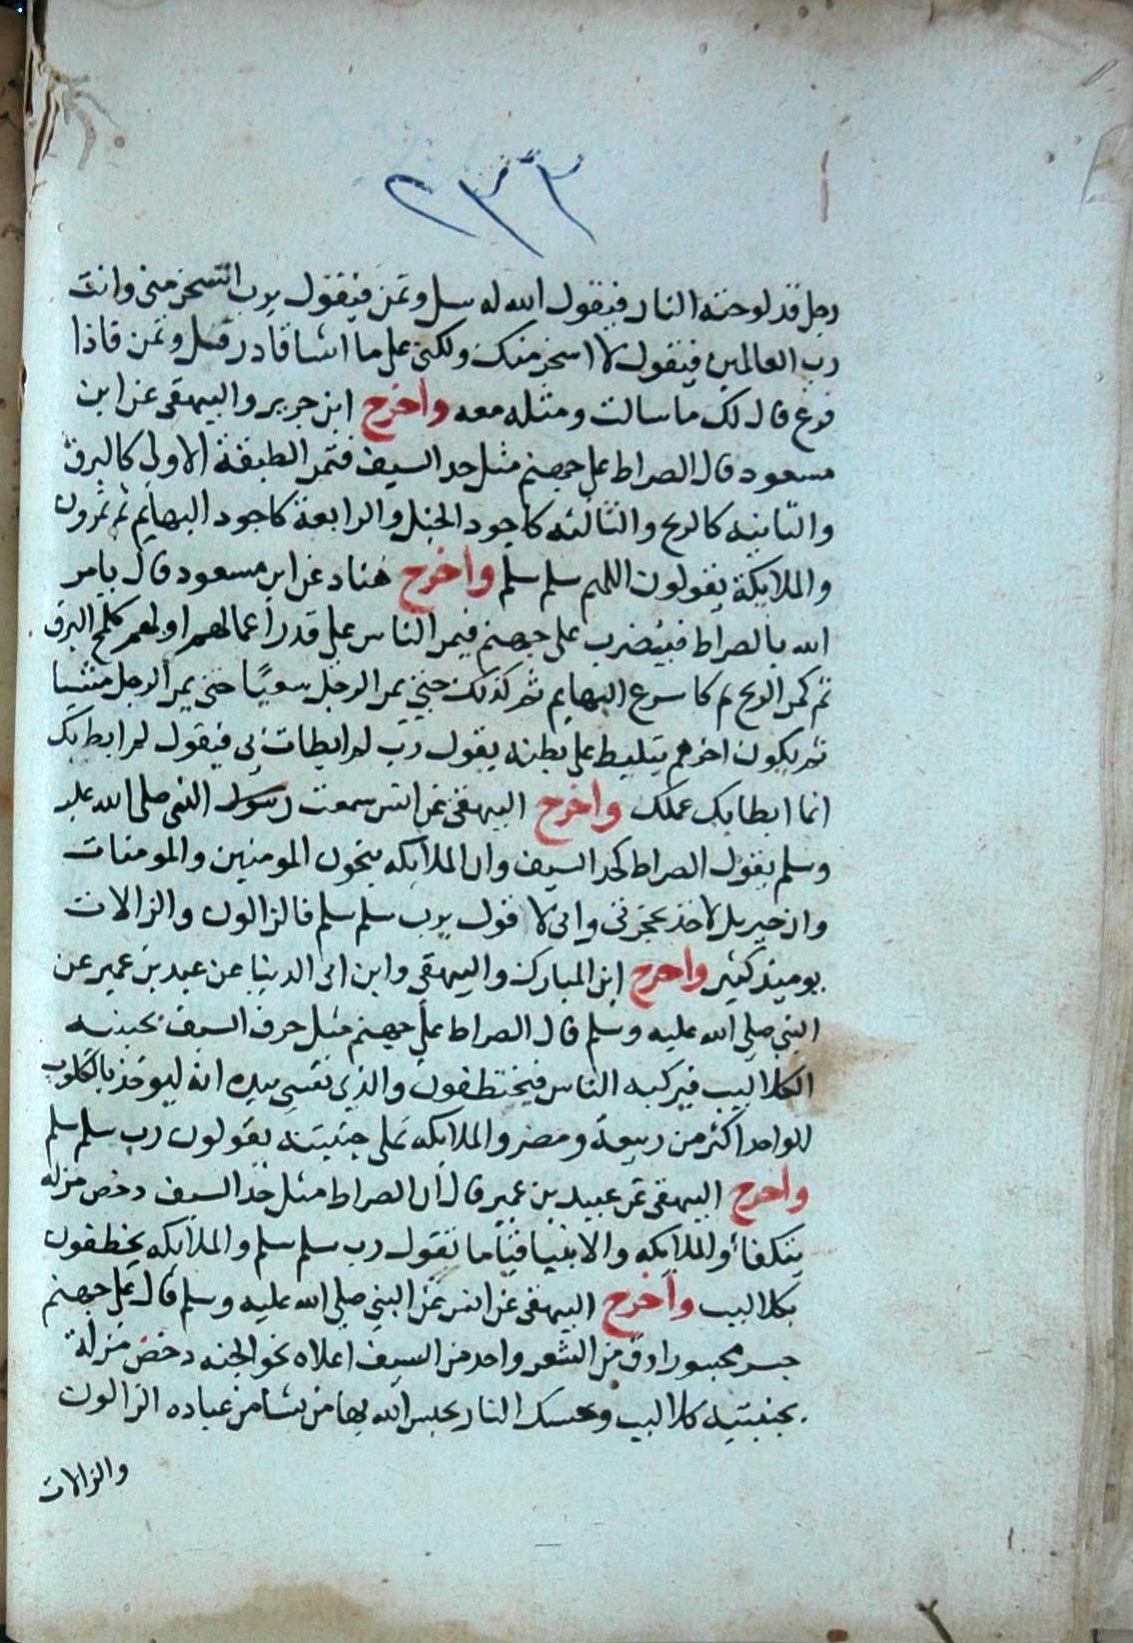 ٢٣٣
رجل قد لوحته النار فيقول الله له سل وتمن فيقول يرب اتسخر مني وانت
رب العالمين فيقول لا اسخر منك ولكني على ما اشا قادر فسل وتمن فاذا
فرغ قال لك ما سالت ومثله معه واخرج ابن جرير والبيهقي عن ابن
مسعود قال الصراط على جهنم مثل حد السيف فتمر الطبقة الاولى كالبرق
والثانيه كالريح والثالثه كاجود الخيل والرابعة كاجود البهايم ثم يمرون
والملايكة يقولون اللهم سلم سلم واخرج هناد عن ابن مسعود قال يامر
الله بالصراط فيضرب على جهنم فيمر الناس على قدر اعمالهم اولهم كلمح البرق
ثم كمر الريح ثم كاسرع البهايم ثم كذلك حتي يمر الرجل سعيًا حتي يمر الرجل مشيا
ثم يكون اخرهم يتلبط على بطنه يقول رب لم ابطات بي فيقول لم ابط بك
انما ابطا بك عملك واخرج البيهقي عن انس سمعت رسول النبي صلى الله عليه
وسلم يقول الصراط كحد السيف وان الملايكه ينجون المومنين والمومنات
وان جبريل لاخذ بحجزتي واني لا قول يرب سلم سلم فالزالون والزالات
يوميذ كثير واخرج ابن المبارك والبيهقي وابن ابي الدنيا عن عبيد بن عمير عن
النبي صلى الله عليه وسلم قال الصراط على جهنم مثل حرف السيف بجنبيه
الكلاليب فيركبه الناس فيختطفون والذي نفسي بيده انه ليوخذ بالكلوب
الواحد اكثر من ربيعة ومضر والملايكه على جنبتيه يقولون رب سلم سلم
واخرج البيهقي عن عبيد بن عمير قال ان الصراط مثل حد السيف دحض مزله
يتكفا والملايكه والانبيا قياما يقول رب سلم سلم والملايكه يخطفون
بكلاليب واخرج البيهقي عن انس عن النبي صلى الله عليه وسلم قال على جهنم
جسر مجسور ادق من الشعر واحد من السيف اعلاه نحو الجنه دحض مزلة
بجنبتيه كلاليب وحسك النار يحبس الله بها من يشا من عباده الزالون
والزالات